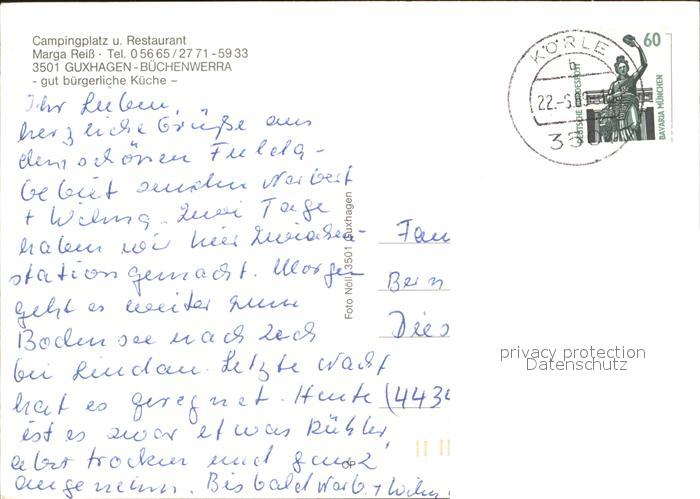 Campingplatz u. Restaurant
Marga Reiß · Tel. 0 56 65 / 27 71 - 59 33
3501 GUXHAGEN - BÜCHENWERRA
- gut bürgerliche Küche -
Ihr Lieben,
herzliche Grüße aus
dem schönen Fulda-
gebiet senden Norbert
+ Wilma. Zwei Tage
haben wir hier Zwischen-
station gemacht. Morgen
geht es weiter zum
Bodensee nach
bei Lindau. Letzte Nacht
hat es geregnet. Heute
ist es zwar etwas kühler,
aber trocken und ganz
angenehm. Bis bald Norb. + Wilm
Foto Nöll, 3501 Guxhagen
Fam
Bern
Dies
(443
KÖRLE
b
22.-
35
60
DEUTSCHE BUNDESPOST
BAVARIA MÜNCHEN
privacy protection
Datenschutz